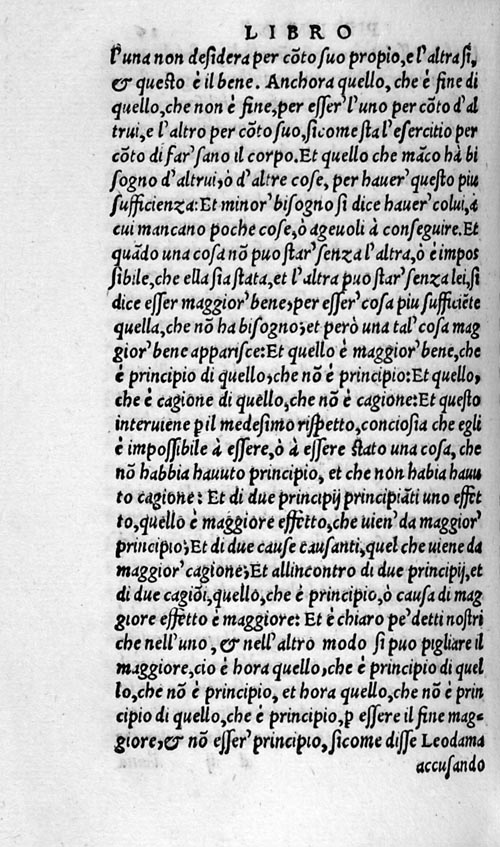 LIBRO
l'una non desidera per cõto suo propio, e l'altra sì,
& questo è il bene. Anchora quello, che è fine di
quello, che non è fine, per esser' l'uno per cõto d'al
trui, e l'altro per cõto suo, sicome sta l'esercitio per
cõto di far' sano il corpo. Et quello che mãco hà bi
sogno d'altrui, ò d'altre cose, per hauer' questo piu
sufficienza: Et minor' bisogno si dice hauer' colui, à
cui mancano poche cose, ò ageuoli à conseguire. Et
quãdo una cosa nõ puo star' senza l'altra, ò è impos
sibile, che ella sia stata, et l'altra puo star' senza lei, si
dice esser maggior' bene, per esser' cosa piu sufficiẽte
quella, che nõ ha bisogno; et però una tal' cosa mag
gior' bene apparisce: Et quello è maggior' bene, che
è principio di quello, che nõ è principio: Et quello,
che è cagione di quello, che nõ è cagione: Et questo
interuiene ꝑ il medesimo rispetto, conciosia che egli
è impossibile à essere, ò à essere stato una cosa, che
nõ habbia hauuto principio, et che non habia hauu
to cagione: Et di due principij principiãti uno effet
to, quello è maggiore effetto, che uien' da maggior'
principio; Et di due cause causanti, quel che uiene da
maggior' cagione; Et allincontro di due principij, et
di due cagiõi, quello, che è principio, ò causa di mag
giore effetto è maggiore: Et è chiaro pe' detti nostri
che nell'uno, & nell'altro modo si puo pigliare il
maggiore, cio è hora quello, che è principio di quel
lo, che nõ è principio, et hora quello, che nõ è prin
cipio di quello, che è principio, ꝑ essere il fine mag-
giore, & nõ esser' principio, sicome disse Leodama
accusando